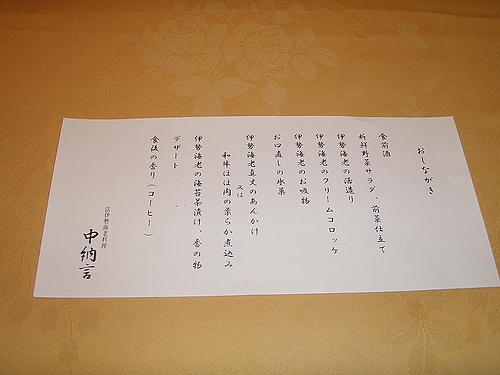 おしながき
食前酒
新鮮野菜サラダ、前菜仕立て
伊勢海老の活造り
伊勢海老のクリームコロッケ
伊勢海老のお吸物
お口直しの氷菓
伊勢海老真丈のあんかけ
又は
和牛ほほ肉の柔らか煮込み
伊勢海老の海苔茶漬け、香の物
デザート
食後の香り(コーヒー)
活伊勢海老料理
中納言